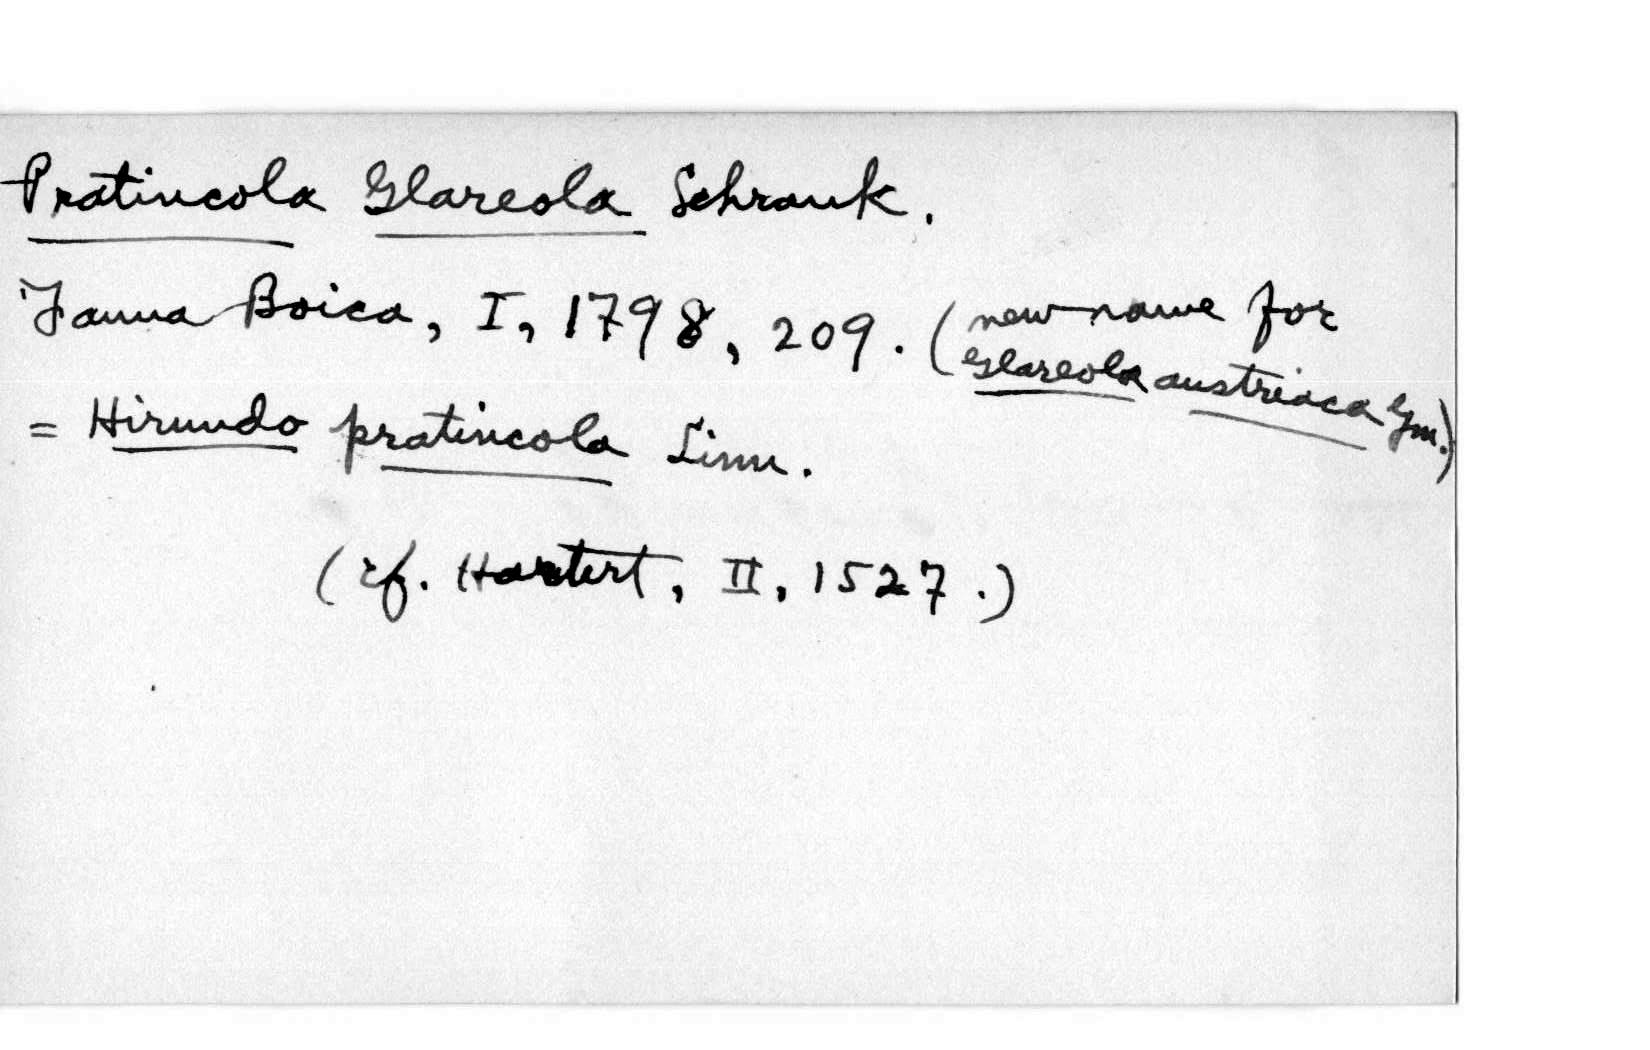 Pratincola Glareola Schrank.
Fauna Boica, I, 1798, 209. (new name for
Glareola austriaca Gm.)
= Hirundo pratincola Linn.
(cf. Hartert, II, 1527.)